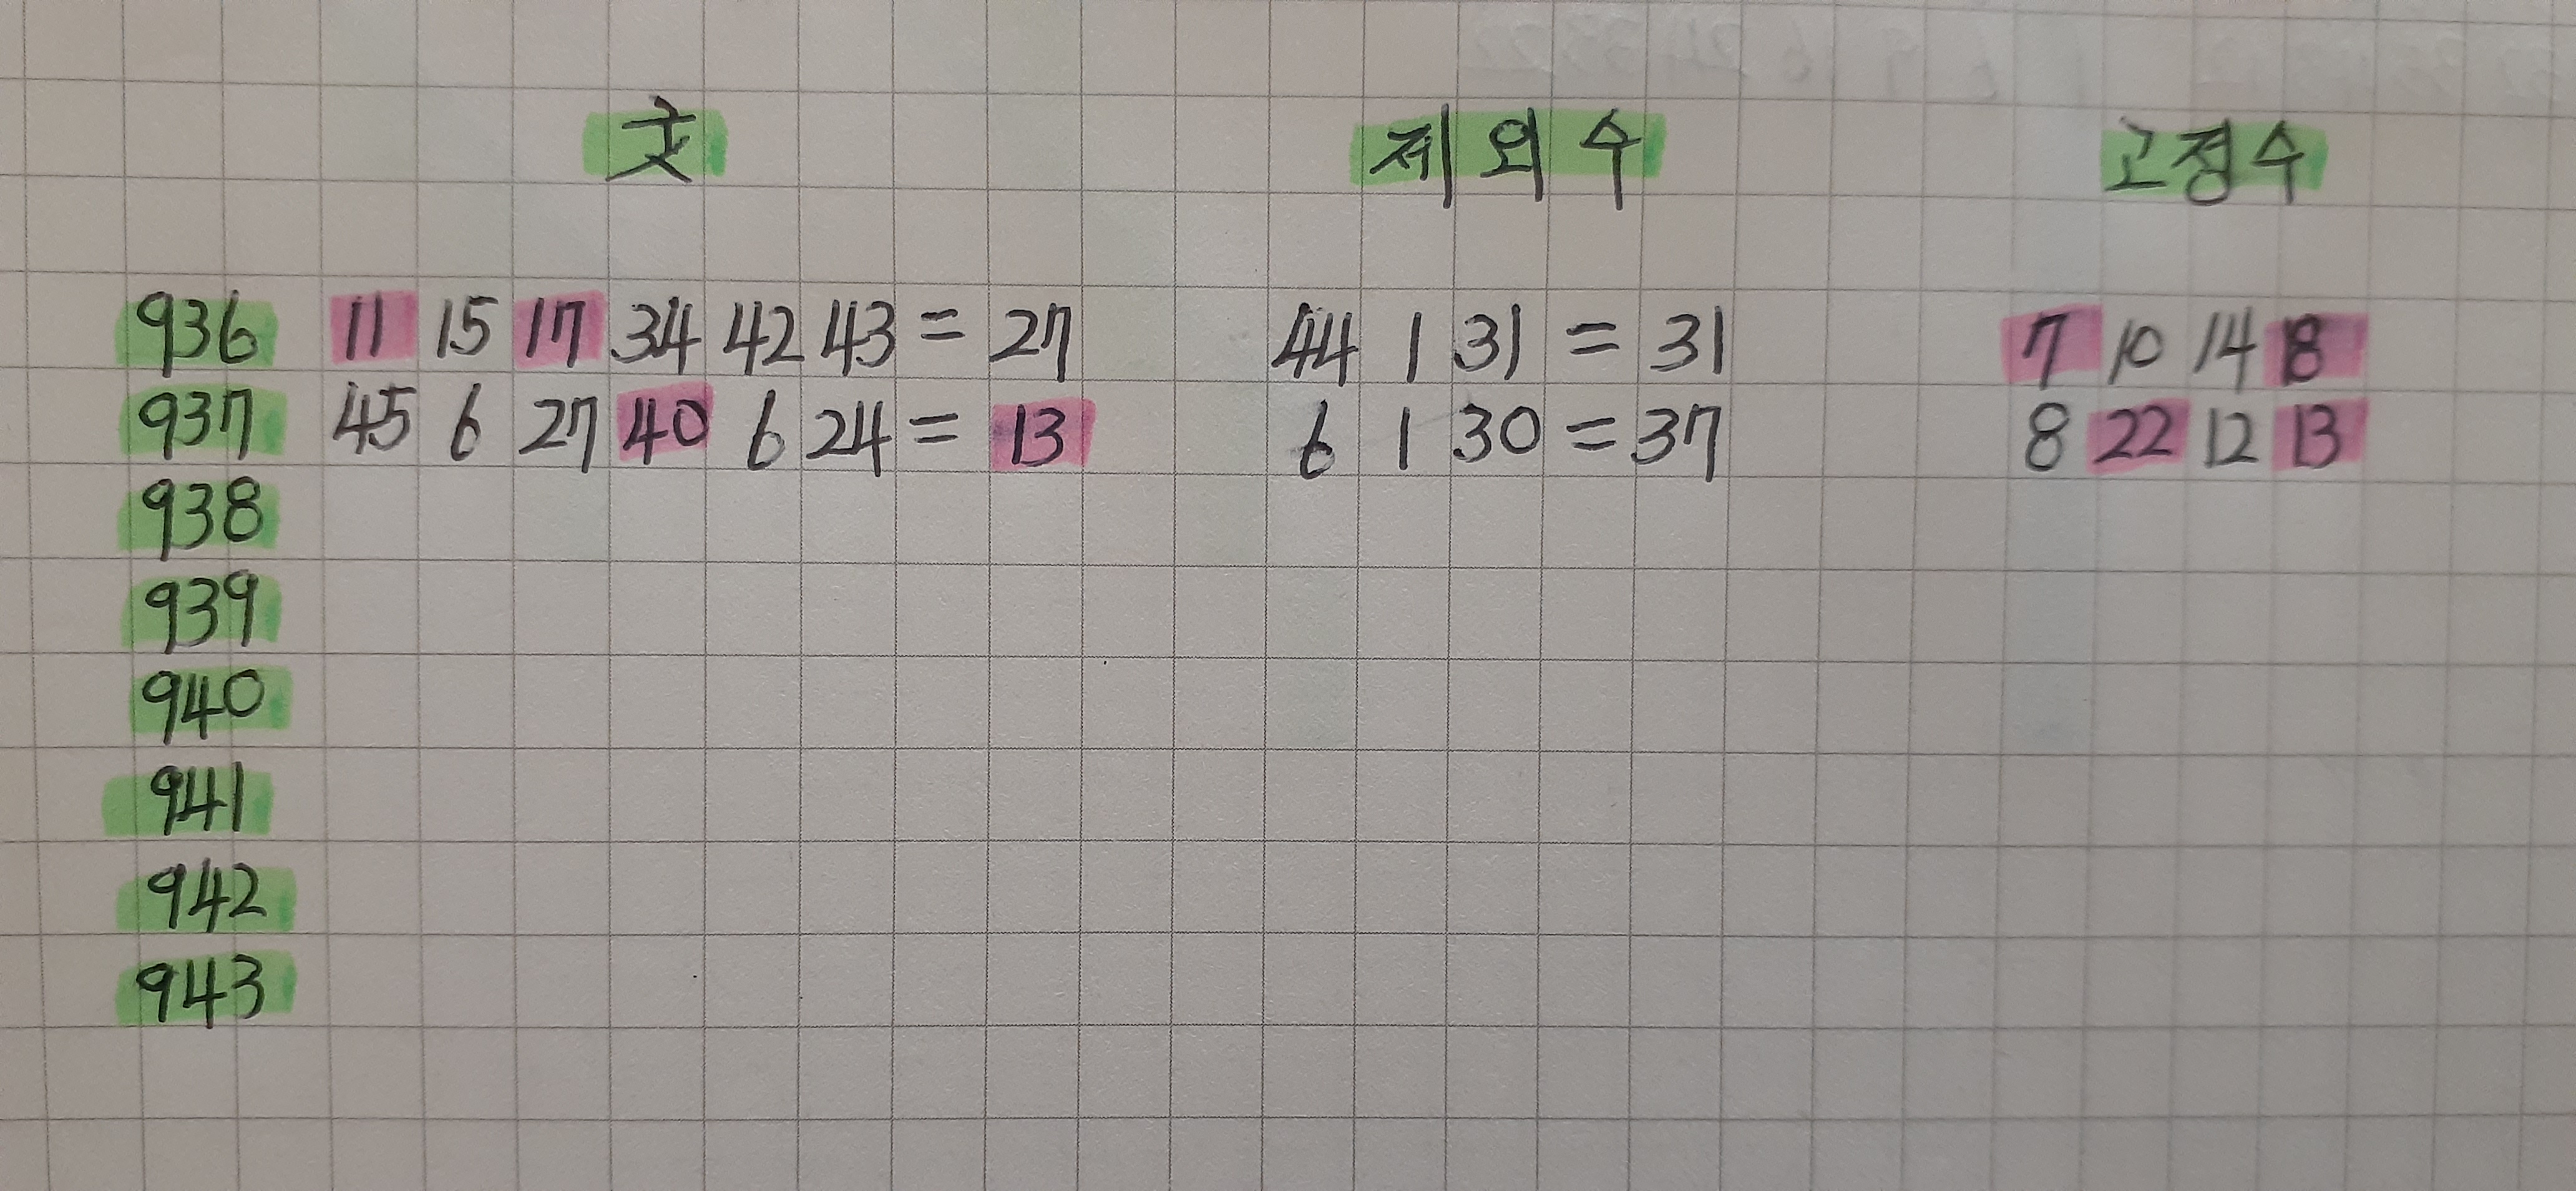 文 제외수 고정수
936 11 15 17 34 42 43 = 27 44 1 31 = 31 7 10 14 18
937 45 6 27 40 6 24 = 13 6 1 30 = 37 8 22 12 13
938
939
940
941
942
943